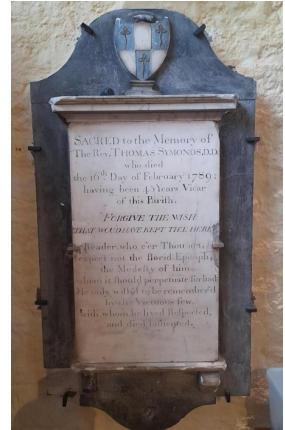 SACRED to the Memory of
The Rev. THOMAS SYMONDS, D.D.
who died
the 16th Day of February 1789:
having been 45 Years Vicar
of this Parish.
FORGIVE THE WISH
THAT WOUD HAVE KEPT THEE HERE
Reader, who e'er Thou art,
expect not the florid Epitaph,
the Modesty of him,
whom it should perpetuate forbad:
He only wish'd to be remember'd
by the Virtuous few,
with whom he lived Respected,
and died, lamented.